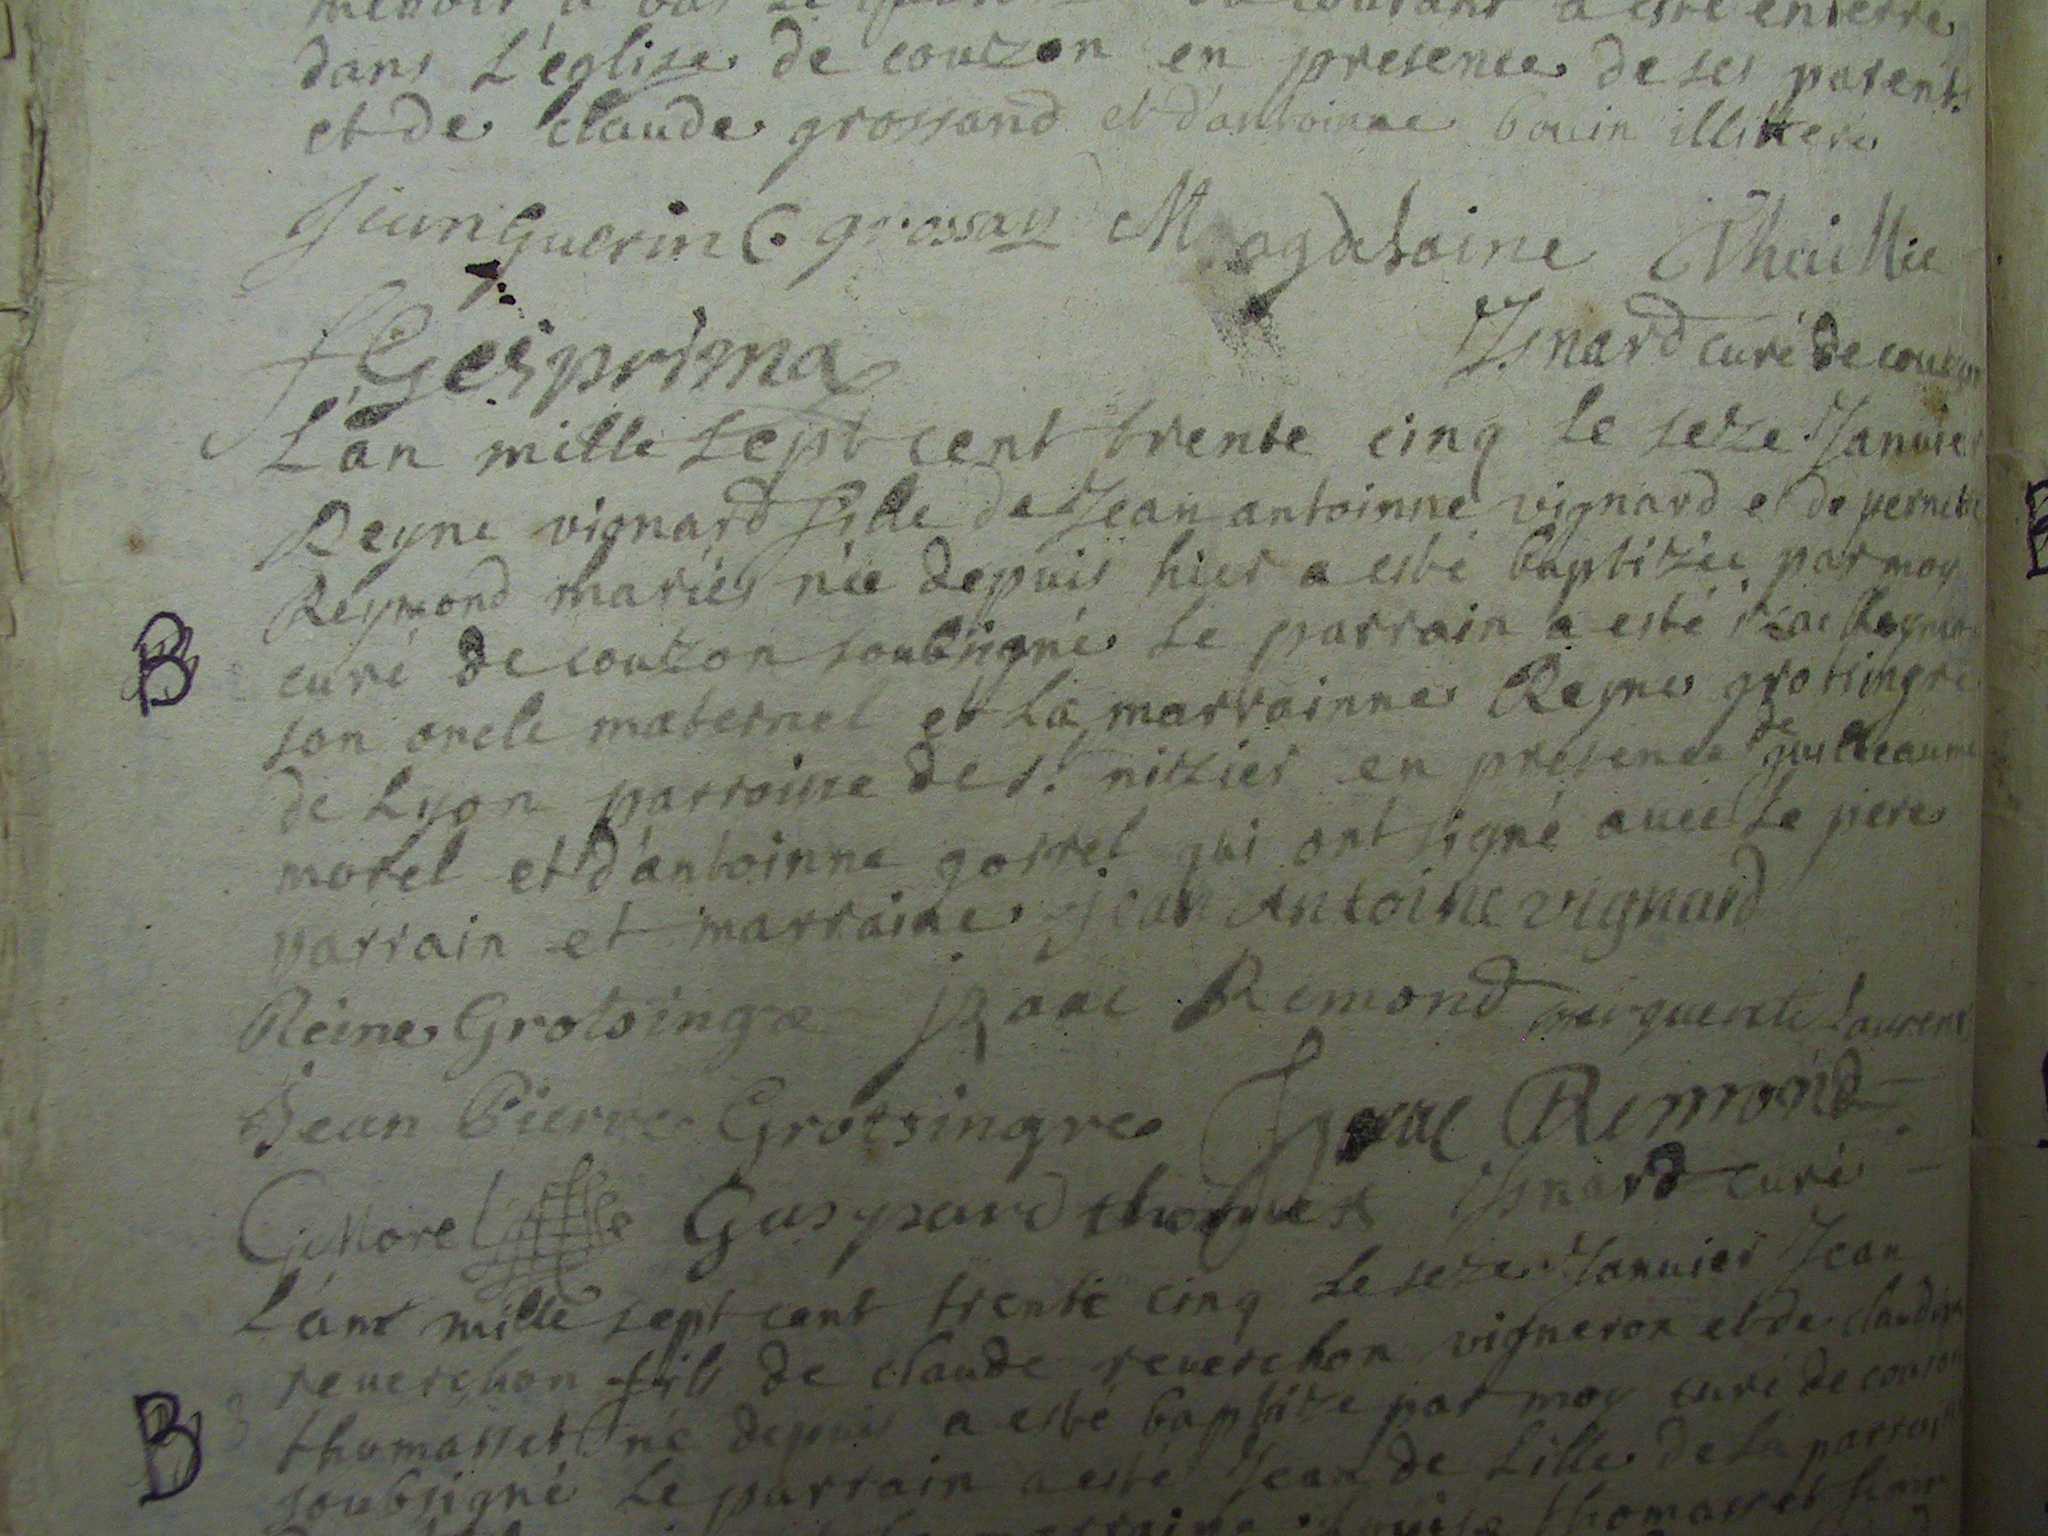 a esté enterré
dans L'eglise de couzon en presence de ses parents
et de claude grossand et d'antoinne bouin illitteré
Jean Guerin C. grossan Magdelaine
Gesprima
Isnard curé de couzon
L'an mille sept cent trente cinq le seze Januier
Reyne vignard fille de Jean antoinne vignard et de pernette
Reymond mariés née depuis hier a esté baptizée par moy
B
curé de couzon soubsigné le parrain a esté isaac Reymond
son oncle maternel et la marrainne Reyne grotsingre
de Lyon parroisse de st. nizier en presence de guilleaume
morel et d'antoinne gorrel qui ont signé auec le pere
parrain et marraine Jean Antoine vignard
Reine Grotsingre Isaac Remond marguerite Laurent
Jean Pierre Grotsingre Isaac Remond
G Morel Gaspard thomasset Isnard curé
L'anr mille sept cent trente cinq le seze Januier Jean
reuerchon fils de claude reuerchon vigneron et de claudine
B
thomasset né depuis a esté baptize par moy curé de couzon
soubsigné le parrain a esté Jean de Lille de la parroisse
thomasset